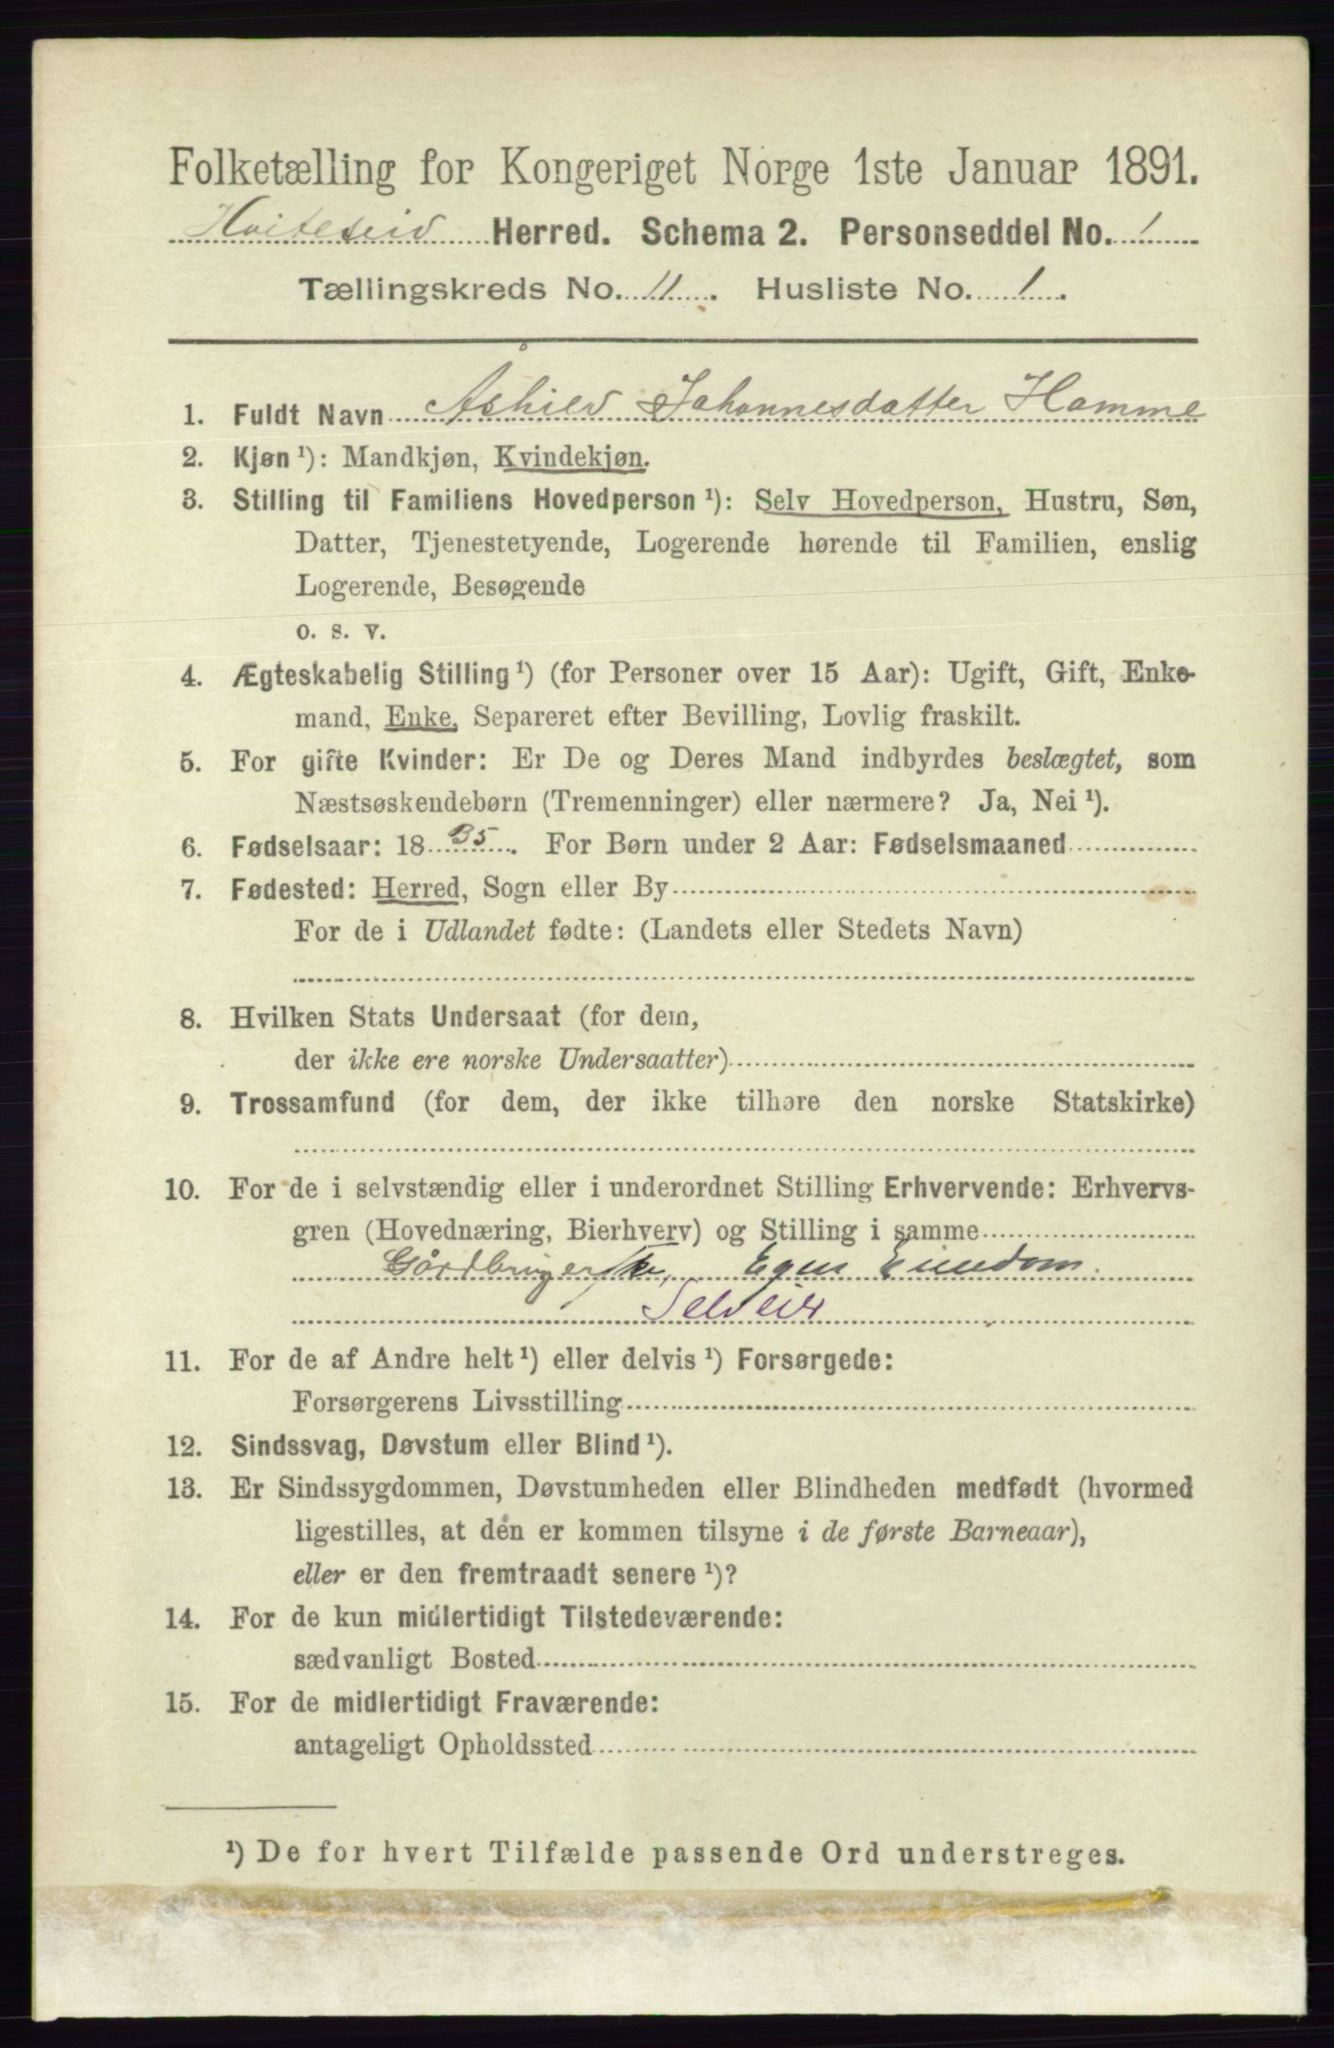 Folketælling for Kongeriget Norge 1ste Januar 1891.
Hviteseid Herred. Schema 2. Personseddel No. 1
Tællingskreds No. 11. Husliste No. 1.
1. Fuldt Navn Åshild Johannesdatter Homme
2. Kjøn¹): Mandkjøn, Kvindekjøn.
3. Stilling til Familiens Hovedperson¹): Selv Hovedperson, Hustru, Søn,
Datter, Tjenestetyende, Logerende hørende til Familien, enslig
Logerende, Besøgende
o. s. v.
4. Ægteskabelig Stilling¹) (for Personer over 15 Aar): Ugift, Gift, Enke-
mand, Enke, Separeret efter Bevilling, Lovlig fraskilt.
5. For gifte Kvinder: Er De og Deres Mand indbyrdes beslægtet, som
Næstsøskendebørn (Tremenninger) eller nærmere? Ja, Nei¹).
6. Fødselsaar: 1835. For Børn under 2 Aar: Fødselsmaaned
7. Fødested: Herred, Sogn eller By
For de i Udlandet fødte: (Landets eller Stedets Navn)
8. Hvilken Stats Undersaat (for dem,
der ikke ere norske Undersaatter)
9. Trossamfund (for dem, der ikke tilhøre den norske Statskirke)
10. For de i selvstændig eller i underordnet Stilling Erhvervende: Erhvervs-
gren (Hovednæring, Bierhverv) og Stilling i samme
Gårdbrugerske, Egen Eiendom.
Selveier
11. For de af Andre helt¹) eller delvis¹) Forsørgede:
Forsørgerens Livsstilling
12. Sindssvag, Døvstum eller Blind¹).
13. Er Sindssygdommen, Døvstumheden eller Blindheden medfødt (hvormed
ligestilles, at den er kommen tilsyne i de første Barneaar),
eller er den fremtraadt senere¹)?
14. For de kun midlertidigt Tilstedeværende:
sædvanligt Bosted
15. For de midlertidigt Fraværende:
antageligt Opholdssted
¹) De for hvert Tilfælde passende Ord understreges.